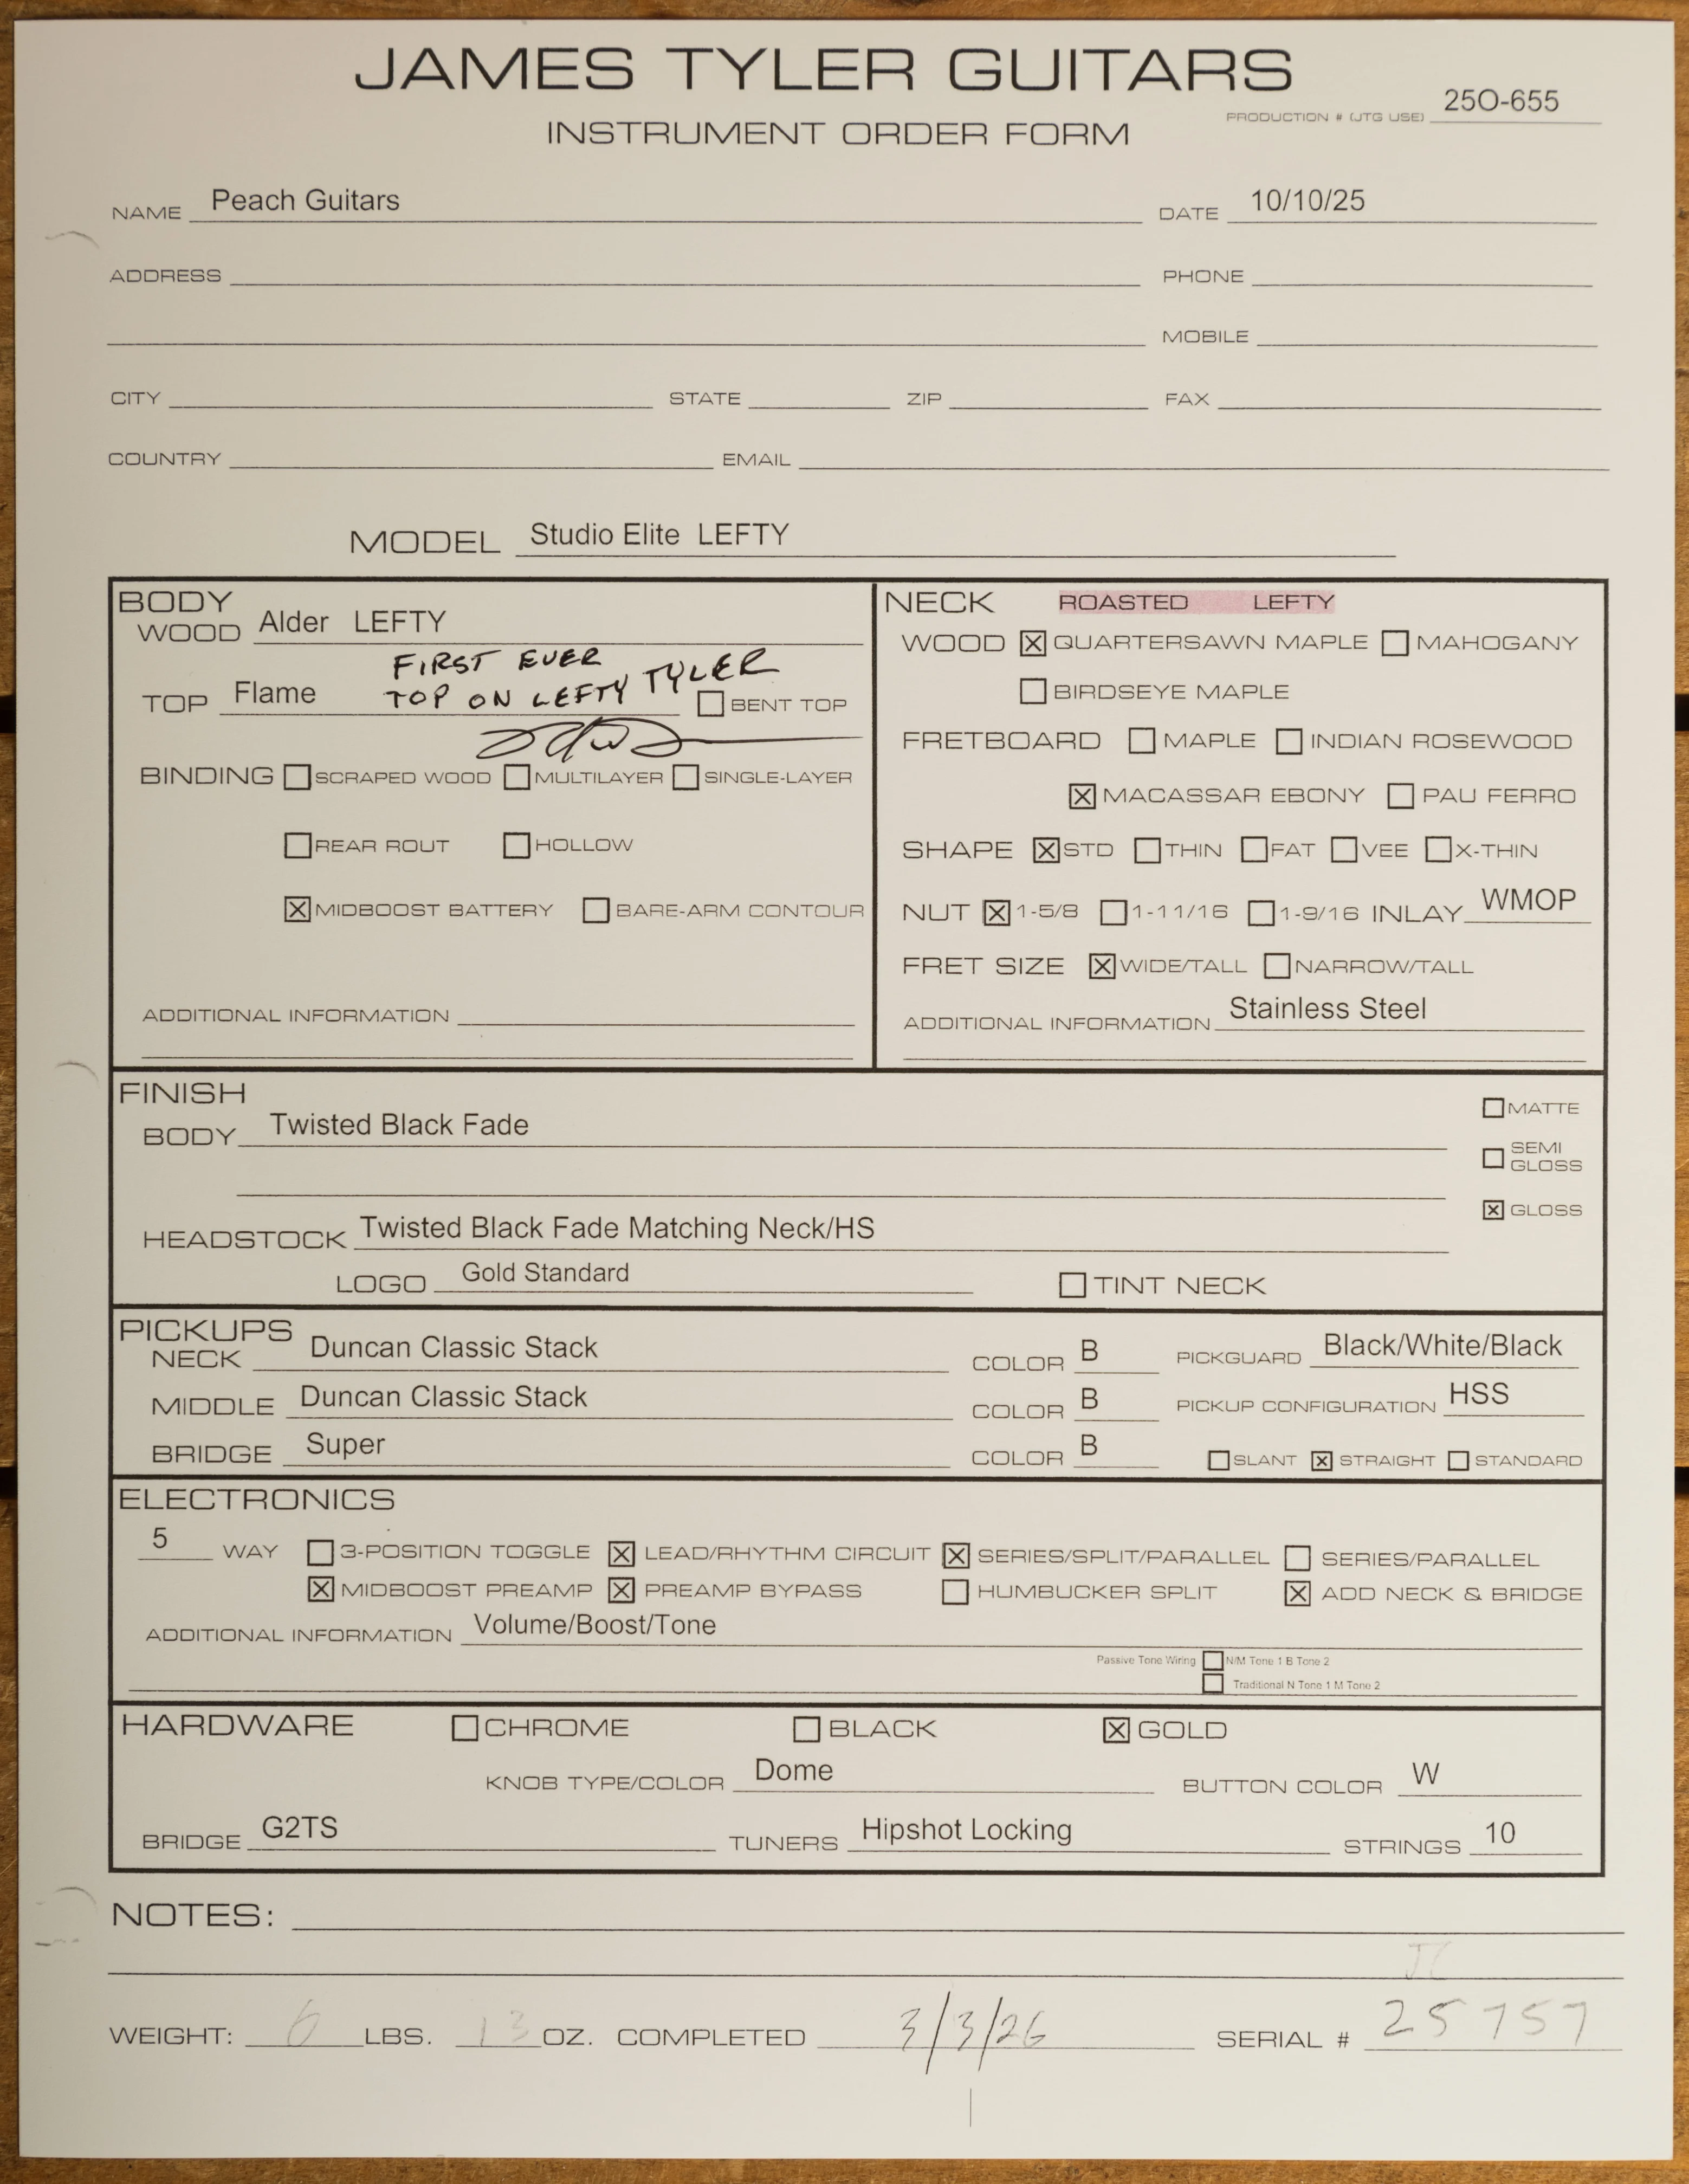 JAMES TYLER GUITARS
INSTRUMENT ORDER FORM
PRODUCTION # (JTG USE) 25O-655
NAME Peach Guitars DATE 10/10/25
ADDRESS PHONE
MOBILE
CITY STATE ZIP FAX
COUNTRY EMAIL
MODEL Studio Elite LEFTY
BODY
WOOD Alder LEFTY
FIRST EVER
TOP Flame TOP ON LEFTY TYLER ☐ BENT TOP
BINDING ☐ SCRAPED WOOD ☐ MULTILAYER ☐ SINGLE-LAYER
☐ REAR ROUT ☐ HOLLOW
☒ MIDBOOST BATTERY ☐ BARE-ARM CONTOUR
ADDITIONAL INFORMATION
NECK ROASTED LEFTY
WOOD ☒ QUARTERSAWN MAPLE ☐ MAHOGANY
☐ BIRDSEYE MAPLE
FRETBOARD ☐ MAPLE ☐ INDIAN ROSEWOOD
☒ MACASSAR EBONY ☐ PAU FERRO
SHAPE ☒ STD ☐ THIN ☐ FAT ☐ VEE ☐ X-THIN
NUT ☒ 1-5/8 ☐ 1-11/16 ☐ 1-9/16 INLAY WMOP
FRET SIZE ☒ WIDE/TALL ☐ NARROW/TALL
ADDITIONAL INFORMATION Stainless Steel
FINISH
BODY Twisted Black Fade
☐ MATTE
☐ SEMI GLOSS
☒ GLOSS
HEADSTOCK Twisted Black Fade Matching Neck/HS
LOGO Gold Standard ☐ TINT NECK
PICKUPS
NECK Duncan Classic Stack COLOR B PICKGUARD Black/White/Black
MIDDLE Duncan Classic Stack COLOR B PICKUP CONFIGURATION HSS
BRIDGE Super COLOR B ☐ SLANT ☒ STRAIGHT ☐ STANDARD
ELECTRONICS
5 WAY ☐ 3-POSITION TOGGLE ☒ LEAD/RHYTHM CIRCUIT ☒ SERIES/SPLIT/PARALLEL ☐ SERIES/PARALLEL
☒ MIDBOOST PREAMP ☒ PREAMP BYPASS ☐ HUMBUCKER SPLIT ☒ ADD NECK & BRIDGE
ADDITIONAL INFORMATION Volume/Boost/Tone
Passive Tone Wiring ☐ N/M Tone 1 B Tone 2
☐ Traditional N Tone 1 M Tone 2
HARDWARE ☐ CHROME ☐ BLACK ☒ GOLD
KNOB TYPE/COLOR Dome BUTTON COLOR W
BRIDGE G2TS TUNERS Hipshot Locking STRINGS 10
NOTES:
WEIGHT: 6 LBS. 13 OZ. COMPLETED 3/3/26 SERIAL # 25757